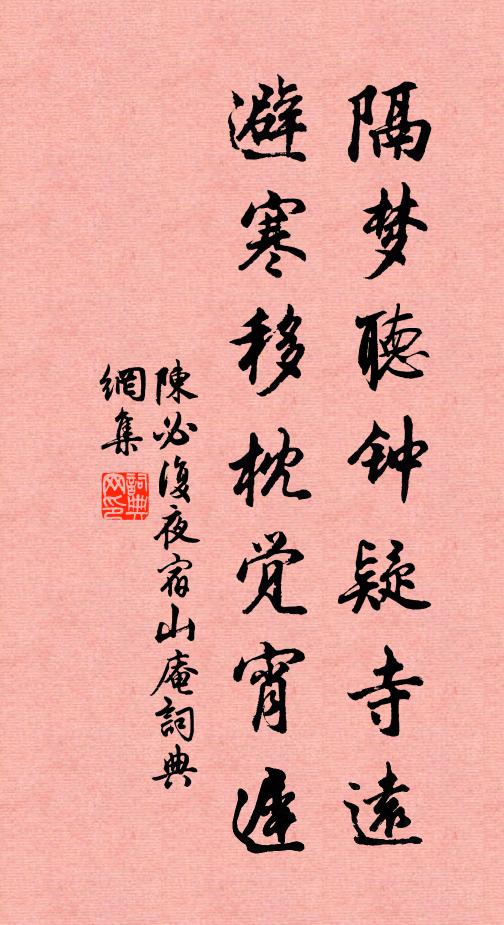 隔梦聽钟疑寺遠
避寒移枕觉宵遲
陳必復夜宿山庵詞典
網集
詞典
网印